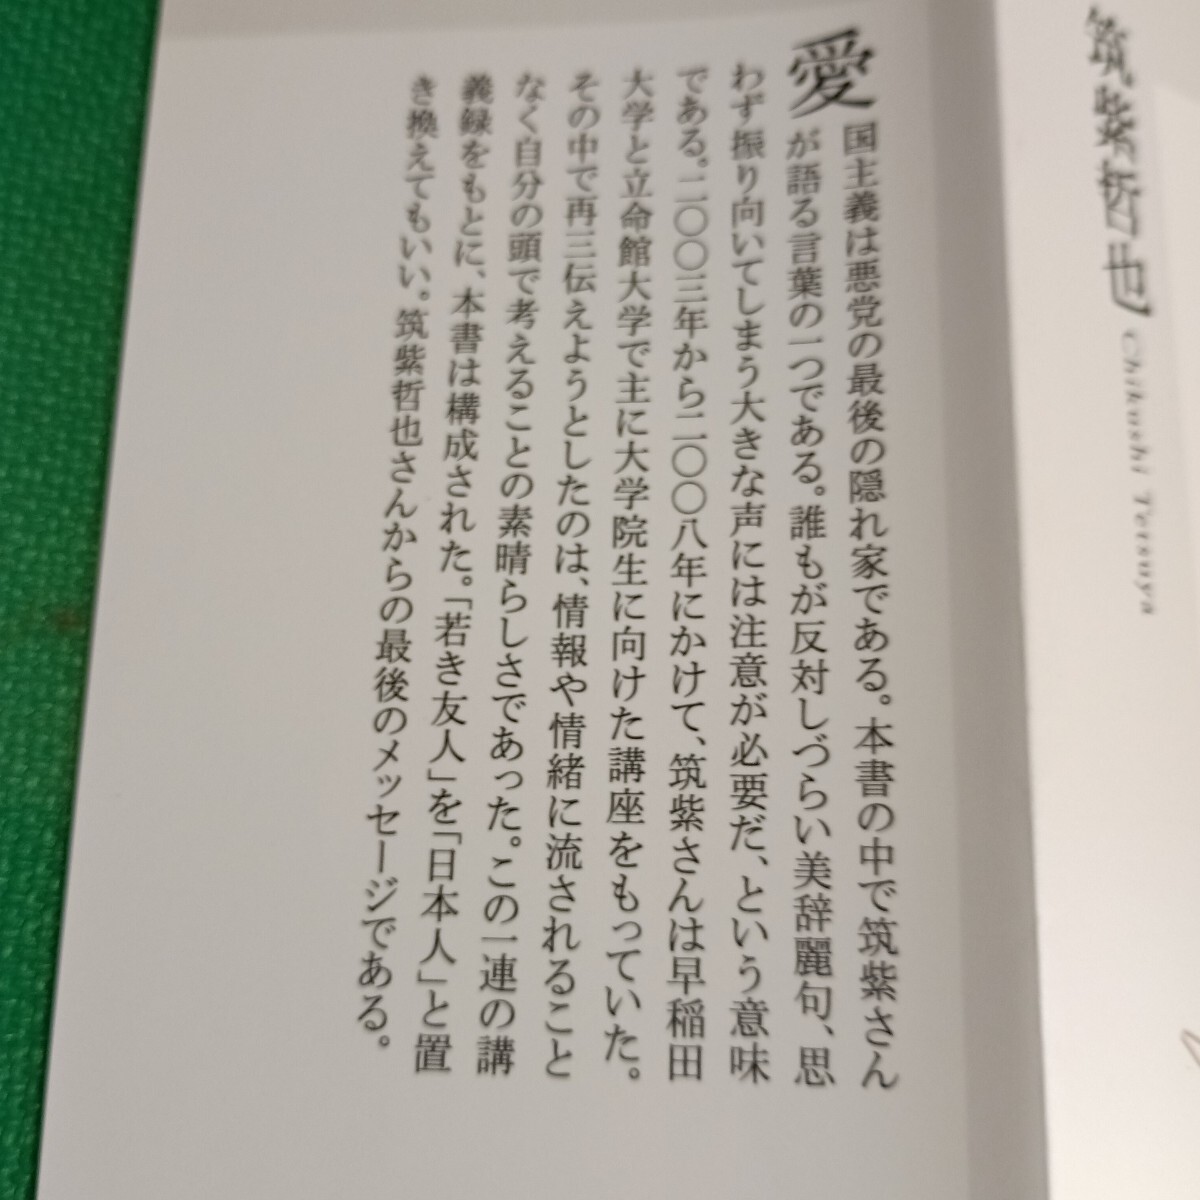 筑紫哲也 Chikushi Tetsuya
愛国主義は悪党の最後の隠れ家である。本書の中で筑紫さん
が語る言葉の一つである。誰もが反対しづらい美辞麗句、思
わず振り向いてしまう大きな声には注意が必要だ、という意味
である。二〇〇三年から二〇〇八年にかけて、筑紫さんは早稲田
大学と立命館大学で主に大学院生に向けた講座をもっていた。
その中で再三伝えようとしたのは、情報や情緒に流されること
なく自分の頭で考えることの素晴らしさであった。この一連の講
義録をもとに、本書は構成された。「若き友人」を「日本人」と置
き換えてもいい。筑紫哲也さんからの最後のメッセージである。